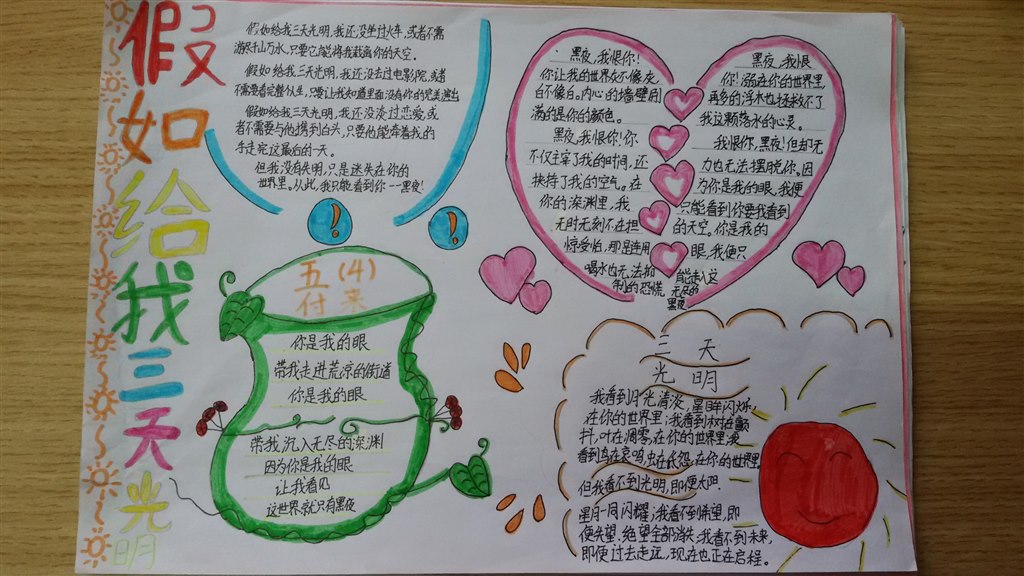 假如给我三天光明
假如给我三天光明,我还没坐过火车,或者不需
游尽千山万水,只要它能将我载离你的天空。
假如给我三天光明,我还没去过电影院,或者
不需要看完整个人生,只要让我知道里面没有你的完美演出
假如给我三天光明,我还没谈过恋爱,或
者不需要与他携手到白头,只要他能牵着我的
手走完这最后的一天。
但我没有失明,只是迷失在你的
世界里。从此,我只能看到你—黑夜!
黑夜,我恨你!
你让我的世界好不像灰,
白不像白。内心的墙壁用
满的是你的颜色。
黑夜,我恨你!你
不仅主宰了我的时间,还
挟持了我的空气。在
你的深渊里,我
无时无刻不在担
惊受怕,那是连用
喝水也无法抑
制的恐慌
黑夜,我恨
你!溺在你的世界里,
再多的浮木也拯救不了
我这颗落水的心灵。
我恨你,黑夜!但却无
力也无法摆脱你。因
为你是我的眼,我便
只能看到你要我看到
的天空。你是我的
眼,我便只
能走入这
无尽的
黑夜
五(4)
付
你是我的眼
带我走进荒凉的街道
你是我的眼
带我沉入无尽的深渊
因为你是我的眼
让我看见
这世界就只有黑夜
三天
光明
我看到月光清淡,星眸闪烁,
在你的世界里;我看到树在颤
抖,叶在凋零,在你的世界里;我
看到鸟在哀鸣,虫在哀怨,在你的世界里。
但我看不到光明,即便太阳
星月一同闪耀;我看不到希望,即
便失望、绝望全部消失;我看不到未来,
即便过去走远,现在也正在启程。